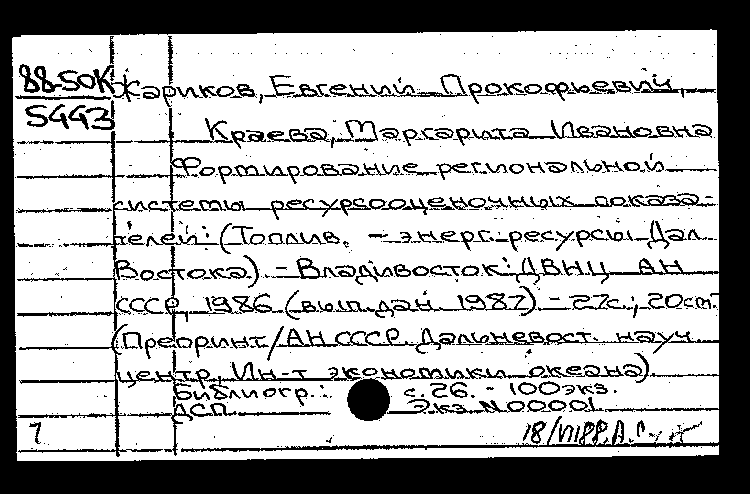 88-50К Жариков, Евгений Прокофьевич,
5443
Краева, Маргарита Ивановна
Формирование региональной
системы ресурсооценочных показа-
телей: (Топлив. - энерг. ресурсы Дал.
Востока). - Владивосток: ДВНЦ АН
СССР, 1986 (вып. дан. 1987). - 27с.; 20см.
(Препринт/АН СССР. Дальневост. науч.
центр, Ин-т экономики океана).
Библиогр.: с. 26. - 100 экз.
ДСП Экз. N 00001
1 18/VII88.